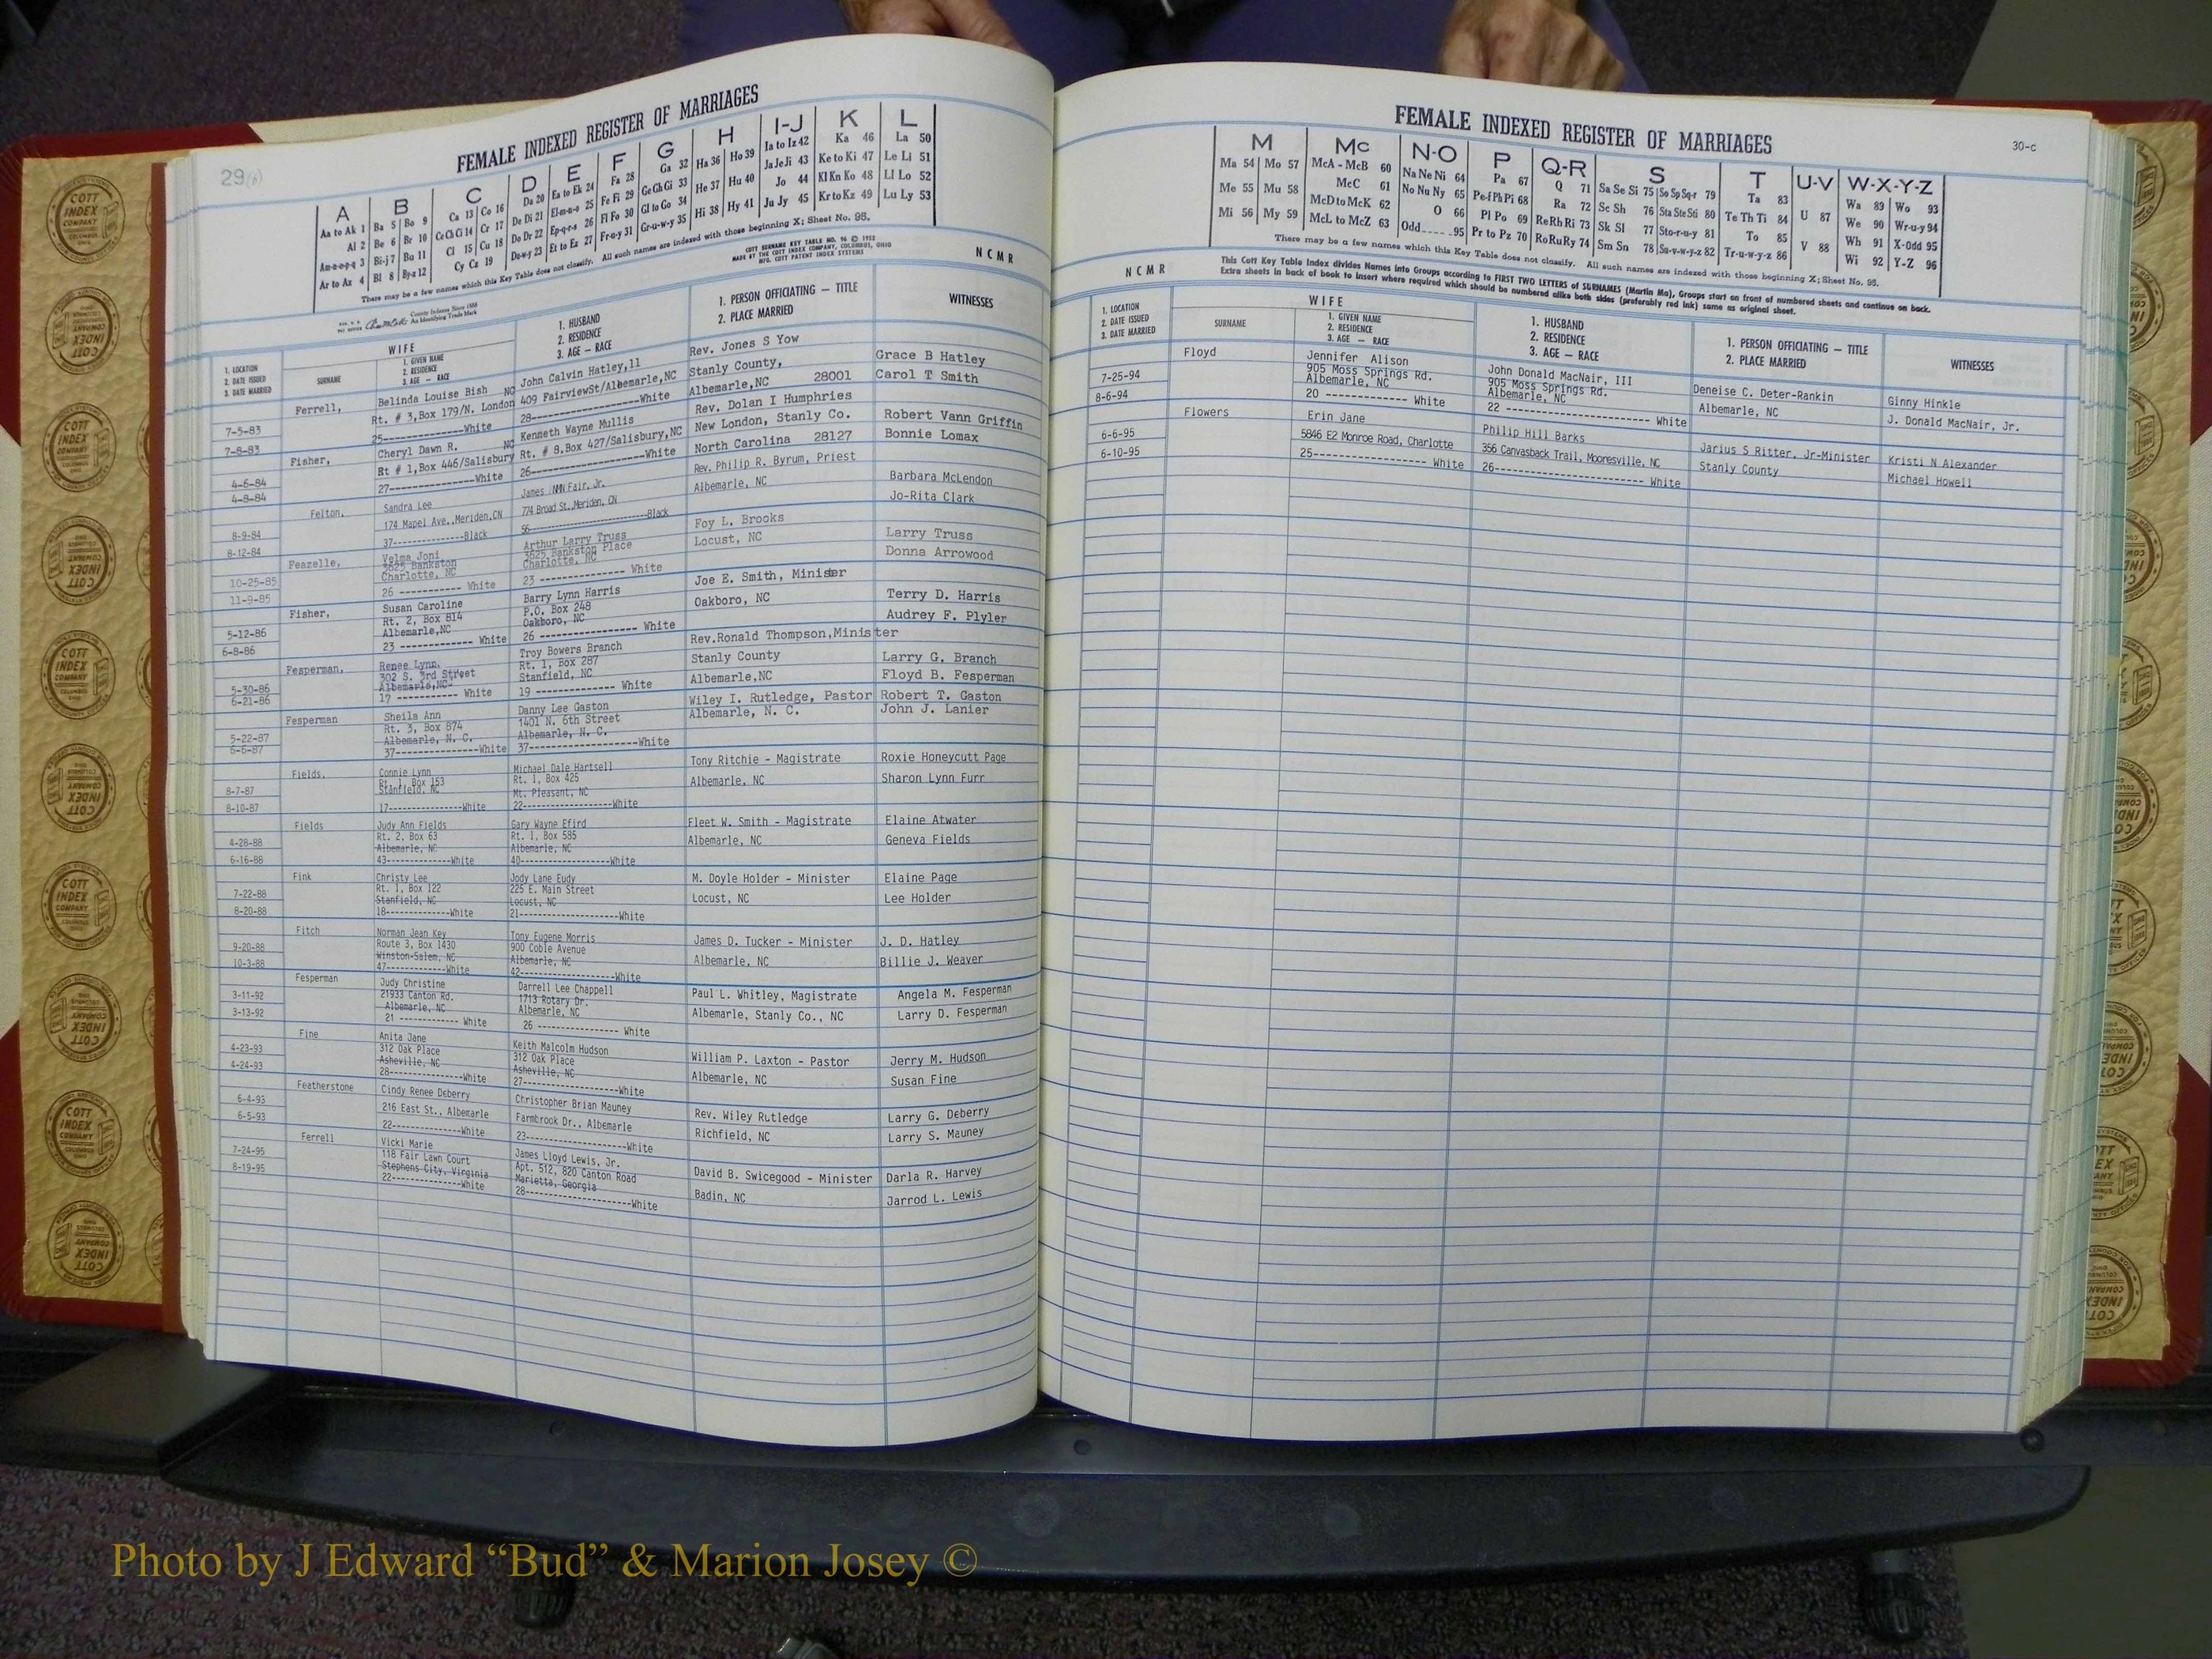 29(b)
FEMALE INDEXED REGISTER OF MARRIAGES
A B C D E F G H I-J K L
Aa to Ak 1 Ba 5 Bo 9 Ca 13 Co 16 Da 20 Ea to Ek 24 Fa 28 Ga 32 Ha 36 Ho 39 Ia to Iz 42 Ka 46 La 50
Al 2 Be 6 Br 10 Ce Ch Ci 14 Cr 17 De Di 21 El-m-n-o 25 Fe Fi 29 Ge Gh Gi 33 He 37 Hu 40 Ja Je Ji 43 Ke to Ki 47 Le Li 51
Am-n-o-p-q 3 Bi-j 7 Bu 11 Cl 15 Cu 18 Do Dr 22 Ep-q-r-s 26 Fl Fo 30 Gl to Go 34 Hi 38 Hy 41 Jo 44 Kl Kn Ko 48 Ll Lo 52
Ar to Az 4 Bl 8 By-z 12 Cy Cz 19 De-w-y 23 Et to Ez 27 Fr-o-y 31 Gr-u-w-y 35 Ju Jy 45 Kr to Kz 49 Lu Ly 53
There may be a few names which this Key Table does not classify. All such names are indexed with those beginning X; Sheet No. 95.
COTT SURNAME KEY TABLE NO. 96 © 1953
MADE BY THE COTT INDEX COMPANY, COLUMBUS, OHIO
MFG. COTT PATENT INDEX SYSTEMS
County Indexes Since 1888
An Identifying Trade Mark
NCMR
1. LOCATION
2. DATE ISSUED
3. DATE MARRIED
WIFE
SURNAME
1. GIVEN NAME
2. RESIDENCE
3. AGE — RACE
1. HUSBAND
2. RESIDENCE
3. AGE — RACE
1. PERSON OFFICIATING — TITLE
2. PLACE MARRIED
WITNESSES
Ferrell, Belinda Louise Bish John Calvin Hatley,11 Rev. Jones S Yow Grace B Hatley
7-5-83 Rt. # 3,Box 179/N. London NC 409 FairviewSt/Albemarle,NC Stanly County, Carol T Smith
7-8-83 25--------------White 28--------------------White Albemarle,NC 28001
Fisher, Cheryl Dawn R. Kenneth Wayne Mullis Rev. Dolan I Humphries Robert Vann Griffin
4-6-84 Rt # 1,Box 446/Salisbury NC Rt. # 8,Box 427/Salisbury,NC New London, Stanly Co. Bonnie Lomax
4-8-84 27--------------White 26--------------------White North Carolina 28127
Felton, Sandra Lee James NMN Fair, Jr. Rev. Philip R. Byrum, Priest Barbara McLendon
8-9-84 174 Mapel Ave.,Meriden,CN 774 Broad St.,Meriden, CN Albemarle, NC Jo-Rita Clark
8-12-84 37--------------Black 56--------------------Black
Feazelle, Velma Joni Arthur Larry Truss Foy L. Brooks Larry Truss
10-25-85 3625 Bankston 3625 Bankston Place Locust, NC Donna Arrowood
11-9-85 Charlotte, NC Charlotte, NC
26 ----------- White 23 -------------- White
Fisher, Susan Caroline Barry Lynn Harris Joe E. Smith, Minister Terry D. Harris
5-12-86 Rt. 2, Box 814 P.O. Box 248 Oakboro, NC Audrey F. Plyler
6-8-86 Albemarle,NC Oakboro, NC
23 ------------ White 26 --------------- White
Fesperman, Renee Lynn. Troy Bowers Branch Rev.Ronald Thompson,Minister Larry G. Branch
5-30-86 302 S. 3rd Street Rt. 1, Box 287 Stanly County Floyd B. Fesperman
6-21-86 Albemarle,NC Stanfield, NC Albemarle,NC
17 ---------- White 19 ------------- White
Fesperman Sheila Ann Danny Lee Gaston Wiley I. Rutledge, Pastor Robert T. Gaston
5-22-87 Rt. 3, Box 874 1401 N. 6th Street Albemarle, N. C. John J. Lanier
6-6-87 Albemarle, N. C. Albemarle, N. C.
37--------------White 37-------------------White
Fields, Connie Lynn Michael Dale Hartsell Tony Ritchie - Magistrate Roxie Honeycutt Page
8-7-87 Rt. 1, Box 153 Rt. 1, Box 425 Albemarle, NC Sharon Lynn Furr
8-10-87 Stanfield, NC Mt. Pleasant, NC
17---------------White 22--------------------White
Fields Judy Ann Fields Gary Wayne Efird Fleet W. Smith - Magistrate Elaine Atwater
4-28-88 Rt. 2, Box 63 Rt. 1, Box 585 Albemarle, NC Geneva Fields
6-16-88 Albemarle, NC Albemarle, NC
43-------------White 40--------------------White
Fink Christy Lee Jody Lane Eudy M. Doyle Holder - Minister Elaine Page
7-22-88 Rt. 1, Box 122 225 E. Main Street Locust, NC Lee Holder
8-20-88 Stanfield, NC Locust, NC
18-------------White 21----------------------White
Fitch Norman Jean Key Tony Eugene Morris James D. Tucker - Minister J. D. Hatley
9-20-88 Route 3, Box 1430 900 Coble Avenue Albemarle, NC Billie J. Weaver
10-3-88 Winston-Salem, NC Albemarle, NC
47------------White 42---------------------White
Fesperman Judy Christine Darrell Lee Chappell Paul L. Whitley, Magistrate Angela M. Fesperman
3-11-92 21933 Canton Rd. 1713 Rotary Dr. Albemarle, Stanly Co., NC Larry D. Fesperman
3-13-92 Albemarle, NC Albemarle, NC
21 ------------ White 26 ---------------- White
Fine Anita Jane Keith Malcolm Hudson William P. Laxton - Pastor Jerry M. Hudson
4-23-93 312 Oak Place 312 Oak Place Albemarle, NC Susan Fine
4-24-93 Asheville, NC Asheville, NC
28--------------White 27----------------------White
Featherstone Cindy Renee Deberry Christopher Brian Mauney Rev. Wiley Rutledge Larry G. Deberry
6-4-93 216 East St., Albemarle Farmbrook Dr., Albemarle Richfield, NC Larry S. Mauney
6-5-93 22--------------White 23----------------------White
Ferrell Vicki Marie James Lloyd Lewis, Jr. David B. Swicegood - Minister Darla R. Harvey
7-24-95 118 Fair Lawn Court Apt. 512, 820 Canton Road Badin, NC Jarrod L. Lewis
8-19-95 Stephens City, Virginia Marietta, Georgia
22--------------White 28----------------------White
30-c
FEMALE INDEXED REGISTER OF MARRIAGES
M Mc N-O P Q-R S T U-V W-X-Y-Z
Ma 54 Mo 57 McA - McB 60 Na Ne Ni 64 Pa 67 Q 71 Sa Se Si 75 So Sp Sq-r 79 Ta 83 U 87 Wa 89 Wo 93
Me 55 Mu 58 McC 61 No Nu Ny 65 Pe-f Ph Pi 68 Ra 72 Sc Sh 76 Sta Ste Sti 80 Te Th Ti 84 V 88 We 90 Wr-u-y 94
Mi 56 My 59 McD to McK 62 O 66 Pl Po 69 Re Rh Ri 73 Sk Sl 77 Sto-r-u-y 81 To 85 Wh 91 X-odd 95
McL to McZ 63 Odd 95 Pr to Pz 70 Ro Ru Ry 74 Sm Sn 78 Su-v-w-y-z 82 Tr-u-w-y-z 86 Wi 92 Y-Z 96
There may be a few names which this Key Table does not classify. All such names are indexed with those beginning X; Sheet No. 95.
NCMR
This Cott Key Table Index divides Names into Groups according to FIRST TWO LETTERS of SURNAMES (Martin Ma), Groups start on front of numbered sheets and continue on back.
Extra sheets in back of book to insert where required which should be numbered alike both sides (preferably red ink) same as original sheet.
1. LOCATION
2. DATE ISSUED
3. DATE MARRIED
WIFE
SURNAME
1. GIVEN NAME
2. RESIDENCE
3. AGE — RACE
1. HUSBAND
2. RESIDENCE
3. AGE — RACE
1. PERSON OFFICIATING — TITLE
2. PLACE MARRIED
WITNESSES
Floyd Jennifer Alison John Donald MacNair, III Deneise C. Deter-Rankin Ginny Hinkle
7-25-94 905 Moss Springs Rd. 905 Moss Springs Rd. Albemarle, NC J. Donald MacNair, Jr.
8-6-94 Albemarle, NC Albemarle, NC
20 ------------- White 22 -------------------- White
Flowers Erin Jane Philip Hill Barks Jarius S Ritter, Jr-Minister Kristi N Alexander
6-6-95 5846 E2 Monroe Road, Charlotte 356 Canvasback Trail, Mooresville, NC Stanly County Michael Howell
6-10-95 25------------------ White 26--------------------- White
Photo by J Edward “Bud” & Marion Josey ©
COTT
INDEX
COMPANY
COLUMBUS
OHIO